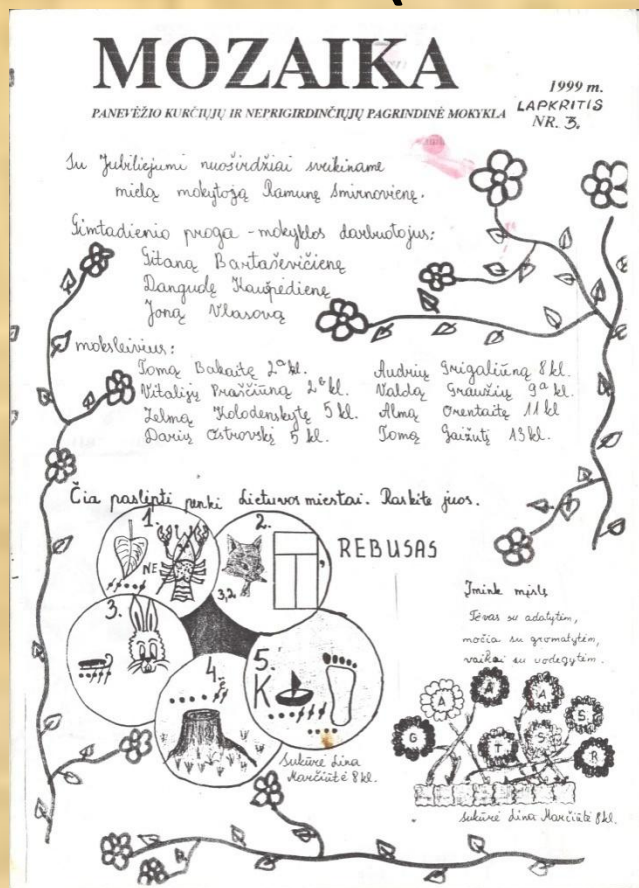 MOZAIKA
1999 m.
PANEVĖŽIO KURČIŲJŲ IR NEPRIGIRDINČIŲJŲ PAGRINDINĖ MOKYKLA
LAPKRITIS
NR. 3.
Su Jubiliejumi nuoširdžiai sveikiname
mielą mokytoją Ramunę Smirnovienę.
Gimtadienio proga - mokyklos darbuotojus:
Gitaną Bartaševičienę
Dangudę Kaupėdienę
Joną Vlasovą
moksleivius:
Tomą Bakaitę 2ª kl.
Vitalijų Praščiūną 2ᵇ kl.
Zelmą Kolodenskytę 5 kl.
Darių Ostrovskį 5 kl.
Audrių Grigaliūną 8 kl.
Valdą Graužių 9ª kl.
Almą Orentaitę 11 kl
Tomą Gaižutį 13 kl.
Čia paslėpti penki Lietuvos miestai. Raskite juos.
1.
NE
2.
3,2.
REBUSAS
3.
4.
5.
K
Sukūrė Lina
Marčiūtė 8 kl.
Įmink mįslę
Tėvas su adatytėm,
močia su gromatytėm,
vaikai su vodegytėm.
A
Ą
A
S
G
T
S
R
Sukūrė Lina Marčiūtė 8 kl.